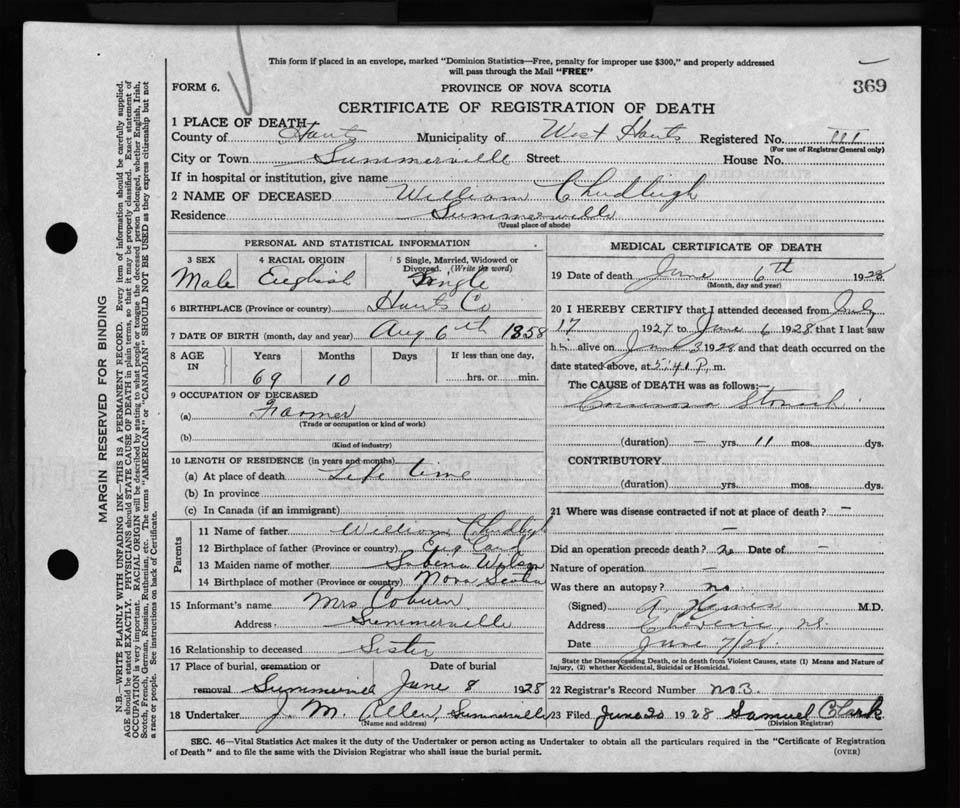 This form if placed in an envelope, marked "Dominion Statistics—Free, penalty for improper use $300," and properly addressed
will pass through the Mail "FREE"
369
FORM 6.
PROVINCE OF NOVA SCOTIA
CERTIFICATE OF REGISTRATION OF DEATH
1 PLACE OF DEATH
County of Hants Municipality of West Hants Registered No.
(For use of Registrar General only)
City or Town Summerville Street House No.
If in hospital or institution, give name
2 NAME OF DECEASED William Chudleigh
Residence Summerville
(Usual place of abode)
PERSONAL AND STATISTICAL INFORMATION
3 SEX 4 RACIAL ORIGIN 5 Single, Married, Widowed or
Divorced. (Write the word)
Male English Single
6 BIRTHPLACE (Province or country) Hants Co
7 DATE OF BIRTH (month, day and year) Aug 6th 1858
8 AGE IN Years Months Days If less than one day,
69 10 hrs. or min.
9 OCCUPATION OF DECEASED
(a) Farmer
(Trade or occupation or kind of work)
(b)
(Kind of industry)
10 LENGTH OF RESIDENCE (in years and months)
(a) At place of death Life time
(b) In province
(c) In Canada (if an immigrant)
Parents
11 Name of father William Chudleigh
12 Birthplace of father (Province or country) England
13 Maiden name of mother Sabena Wilson
14 Birthplace of mother (Province or country) Nova Scotia
15 Informant's name Mrs Coburn
Address Summerville
16 Relationship to deceased Sister
17 Place of burial, cremation or Date of burial
removal Summerville June 8 1928
18 Undertaker J. M. Allen, Summerville
(Name and address)
MEDICAL CERTIFICATE OF DEATH
19 Date of death June 6th 1928
(Month, day and year)
20 I HEREBY CERTIFY that I attended deceased from July
17 1927 to June 6 1928 that I last saw
h alive on June 3 1928 and that death occurred on the
date stated above, at 5:40 P. m.
The CAUSE of DEATH was as follows:—
Carcinoma Stomach
(duration) — yrs. 11 mos. dys.
CONTRIBUTORY
(duration) yrs. mos. dys.
21 Where was disease contracted if not at place of death? —
—
Did an operation precede death? no Date of —
Nature of operation —
Was there an autopsy? no
(Signed) M.D.
Address Cheverie, N.S.
Date June 7/28
State the Disease causing Death, or in death from Violent Causes, state (1) Means and Nature of
Injury, (2) whether Accidental, Suicidal or Homicidal.
22 Registrar's Record Number No 3.
23 Filed June 20 1928 Samuel Clark
(Division Registrar)
SEC. 46—Vital Statistics Act makes it the duty of the Undertaker or person acting as Undertaker to obtain all the particulars required in the "Certificate of Registration
of Death" and to file the same with the Division Registrar who shall issue the burial permit.
(OVER)
MARGIN RESERVED FOR BINDING
N.B.—WRITE PLAINLY WITH UNFADING INK—THIS IS A PERMANENT RECORD. Every item of information should be carefully supplied.
AGE should be stated EXACTLY. PHYSICIANS should STATE CAUSE OF DEATH in plain terms, so that it may be properly classified. Exact statement of
OCCUPATION is very important. RACIAL ORIGIN will be described by stating to what people or tongue the deceased person belonged, whether English, Irish,
Scotch, French, German, Russian, Ruthenian, etc. The terms "AMERICAN" or "CANADIAN" SHOULD NOT BE USED as they express citizenship but not
a race or people. See instructions on back of Certificate.